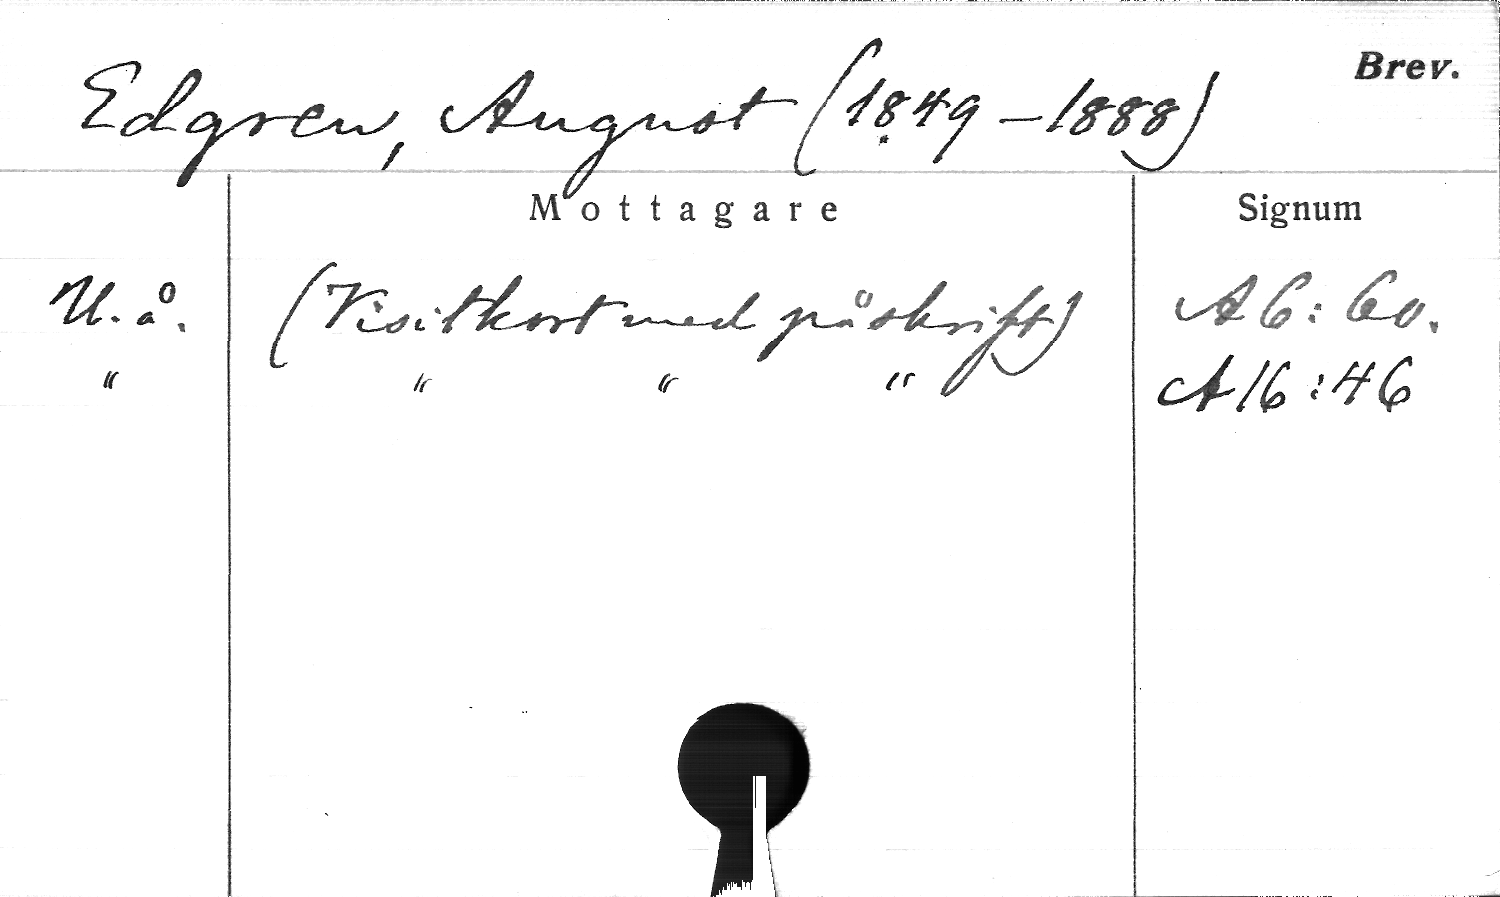 Brev.
Edgren, August (1849–1888)
Mottagare Signum
U.å. (Visitkort med påskrift) A6:60.
" " " " A16:46